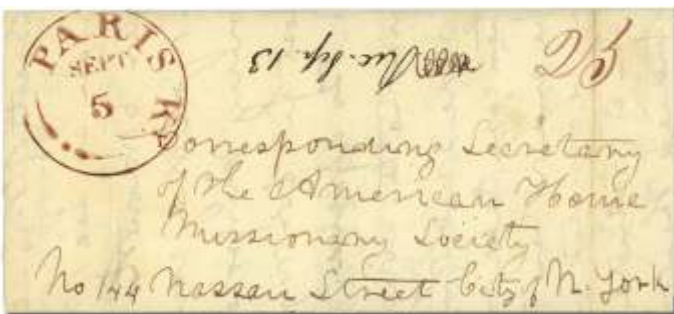 PARIS K
SEPT
5
Rec. Sep. 13
25
Corresponding Secretary
of the American Home
Missionary Society
No 144 Nassau Street City of N. York